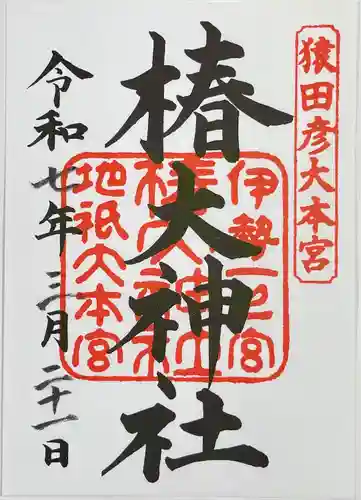 猿田彦大本宮
椿大神社
伊勢一之宮
椿大神社
地祇大本宮
令和七年三月二十一日